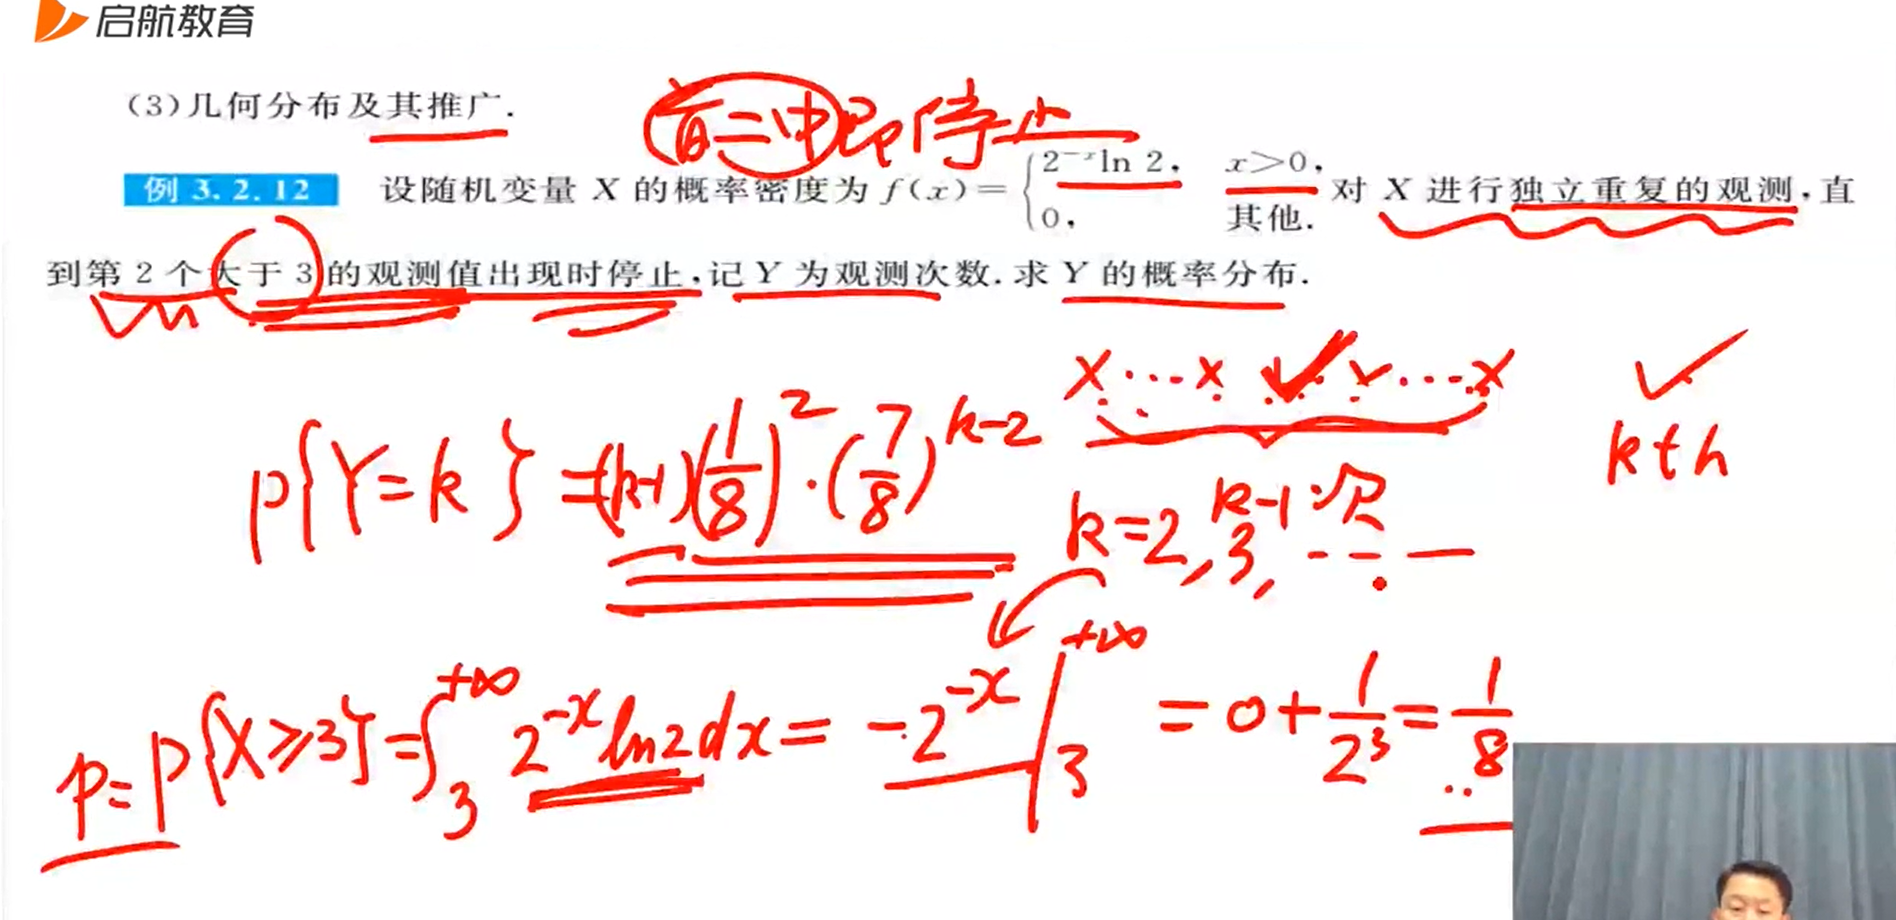 启航教育
(3)几何分布及其推广.
首二中即停止
例 3.2.12 设随机变量 X 的概率密度为 f(x)={2^{-x}ln 2, x>0, 0, 其他. 对 X 进行独立重复的观测,直
到第 2 个大于 3 的观测值出现时停止,记 Y 为观测次数.求 Y 的概率分布.
x···x ✓ x···x ✓
k-1次 kth
P{Y=k}=(k-1)(1/8)^2·(7/8)^{k-2} k=2,3,-----
p=P{X≥3}=∫_3^{+∞} 2^{-x}ln2dx=-2^{-x}|_3^{+∞} =0+1/2^3=1/8